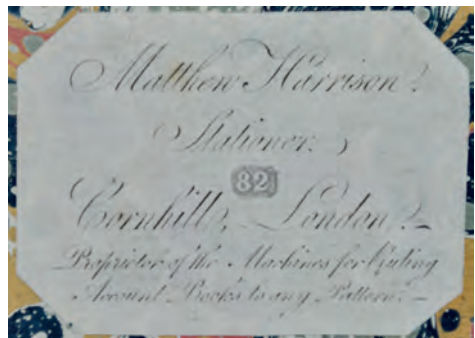 Matthew Harrison.
Stationer.
82
Cornhill, London.
Proprietor of the Machines for Ruling
Account Books to any Pattern.